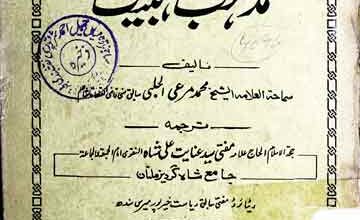 مذہب اہلبیت
تالیف
سماحۃ العلامہ الشیخ محمد مرعی الحلبی سابق
ترجمہ
حجۃ الاسلام الحاج علامہ مفتی سید عنایت علی شاہ النقوی امام الجمعۃ والجماعۃ
جامع شاہ گردیز ملتان
ریٹائرڈ مفتی سابق ریاست خیرپور میرس سندھ